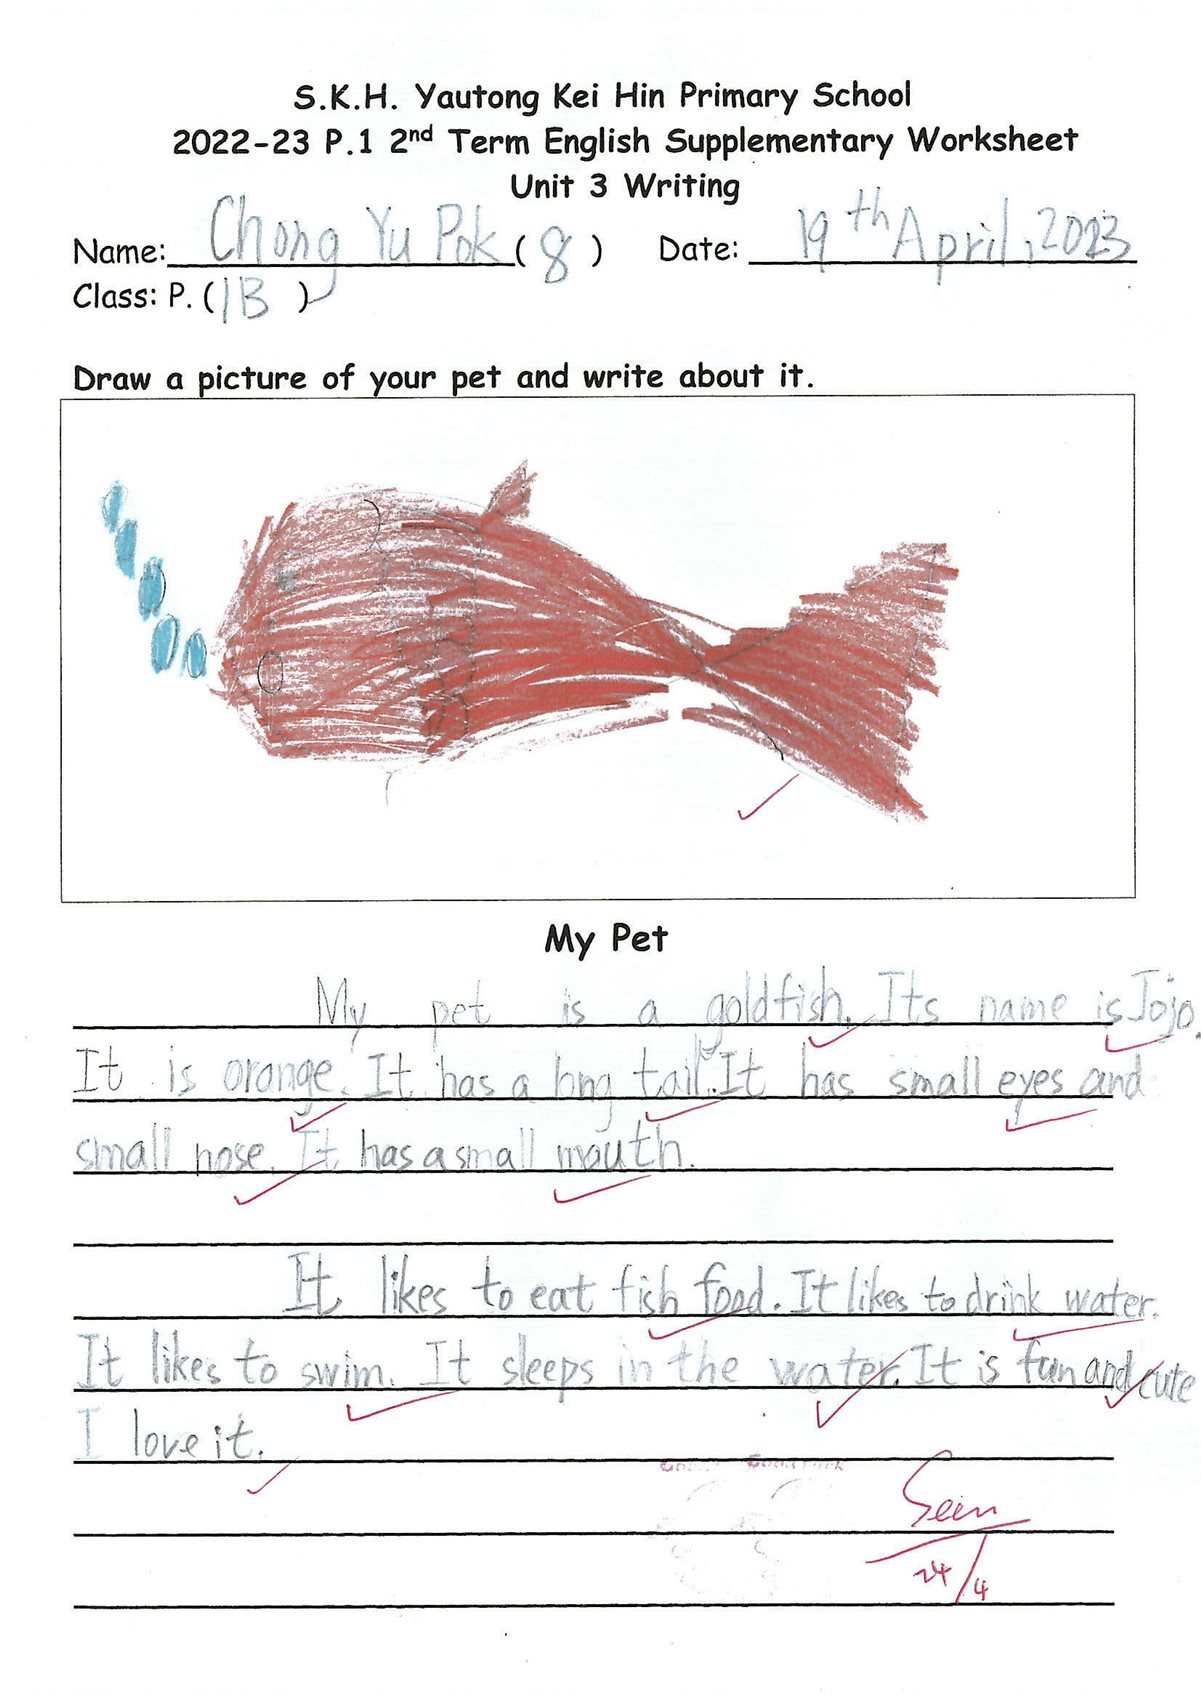 S.K.H. Yautong Kei Hin Primary School
2022-23 P.1 2nd Term English Supplementary Worksheet
Unit 3 Writing
Name: Chong Yu Pok ( 8 ) Date: 19th April, 2023
Class: P. ( 1B )
Draw a picture of your pet and write about it.
My Pet
My pet is a goldfish. Its name is Jojo.
It is orange. It has a long tail. It has small eyes and
small nose. It has a small mouth.
It likes to eat fish food. It likes to drink water.
It likes to swim. It sleeps in the water. It is fun and cute
I love it.
Seen
24/4